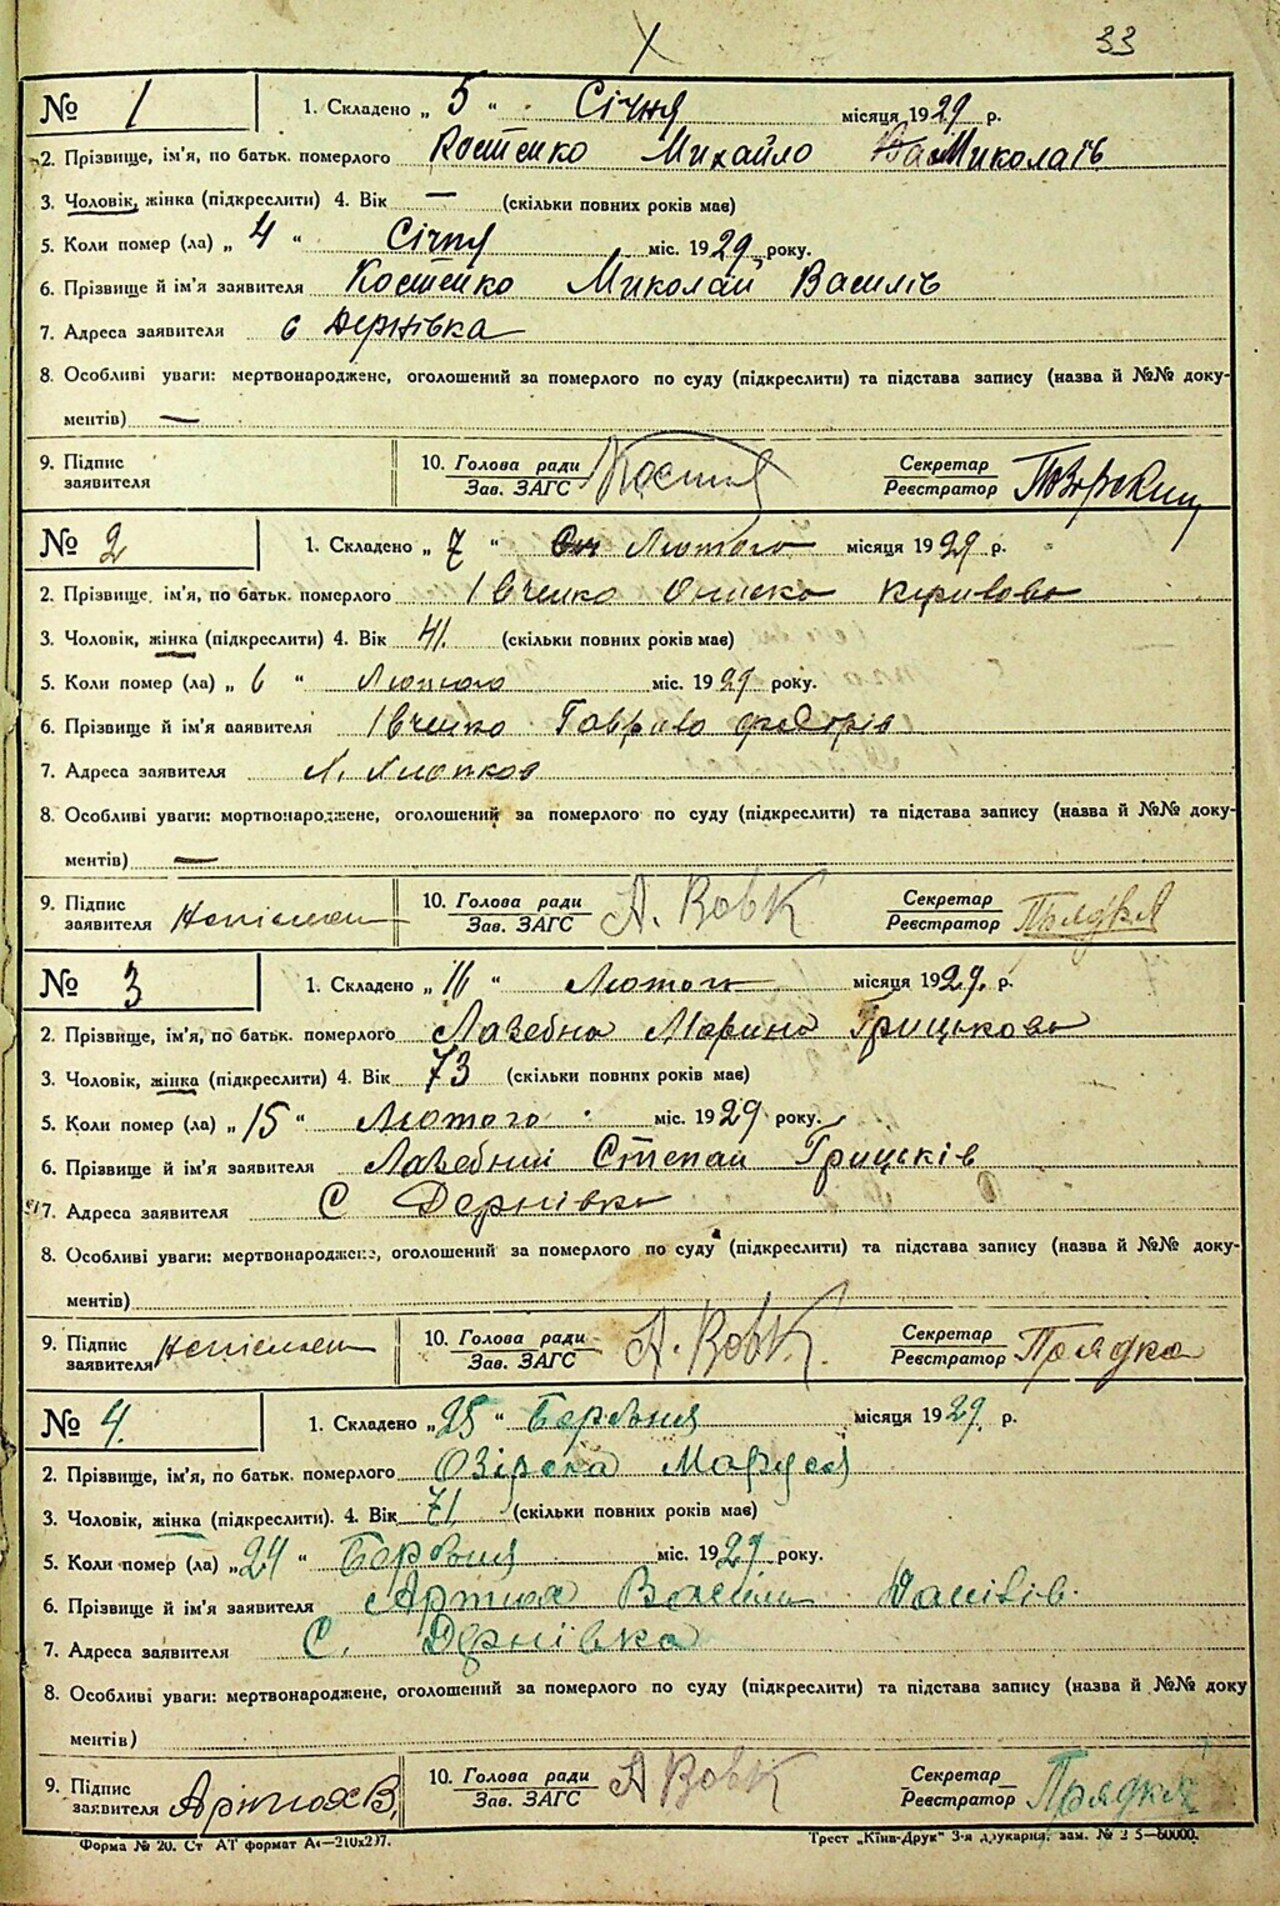 33
№ 1 1. Складено „ 5 “ Січня місяця 1929 р.
2. Прізвище, ім'я, по батьк. померлого Костенко Михайло Миколаїв
3. Чоловік, жінка (підкреслити) 4. Вік — (скільки повних років має)
5. Коли помер (ла) „ 4 “ Січня міс. 1929 року.
6. Прізвище й ім'я заявителя Костенко Миколай Василів
7. Адреса заявителя с Дернівка
8. Особливі уваги: мертвонароджене, оголошений за померлого по суду (підкреслити) та підстава запису (назва й №№ доку-
ментів) —
9. Підпис заявителя 10. Голова ради Зав. ЗАГС Секретар Реєстратор
№ 2 1. Складено „ 7 “ Лютого місяця 1929 р.
2. Прізвище, ім'я, по батьк. померлого Івченко Кирилова
3. Чоловік, жінка (підкреслити) 4. Вік 41. (скільки повних років має)
5. Коли помер (ла) „ 6 “ Лютого міс. 1929 року.
6. Прізвище й ім'я заявителя Івченко Гаврило Федорів
7. Адреса заявителя Х. Хлопков
8. Особливі уваги: мертвонароджене, оголошений за померлого по суду (підкреслити) та підстава запису (назва й №№ доку-
ментів) —
9. Підпис заявителя Неписмен 10. Голова ради Зав. ЗАГС А. Вовк Секретар Реєстратор Прядка
№ 3 1. Складено „ 16 “ Лютого місяця 1929. р.
2. Прізвище, ім'я, по батьк. померлого Лазебна Марина Грицькова
3. Чоловік, жінка (підкреслити) 4. Вік 73 (скільки повних років має)
5. Коли помер (ла) „ 15 “ Лютого міс. 1929 року.
6. Прізвище й ім'я заявителя Лазебний Степан Грицьків
7. Адреса заявителя С Дернівка
8. Особливі уваги: мертвонароджене, оголошений за померлого по суду (підкреслити) та підстава запису (назва й №№ доку-
ментів)
9. Підпис заявителя Неписмен 10. Голова ради Зав. ЗАГС А. Вовк. Секретар Реєстратор Прядка
№ 4. 1. Складено „ 25 “ Березня місяця 1929. р.
2. Прізвище, ім'я, по батьк. померлого Озірська Маруся
3. Чоловік, жінка (підкреслити). 4. Вік 71 (скільки повних років має)
5. Коли помер (ла) „ 24 “ Березня міс. 1929 року.
6. Прізвище й ім'я заявителя Артюх Василь Данилів.
7. Адреса заявителя С. Дернівка
8. Особливі уваги: мертвонароджене, оголошений за померлого по суду (підкреслити) та підстава запису (назва й №№ доку
ментів)
9. Підпис заявителя Артюх В, 10. Голова ради Зав. ЗАГС А Вовк Секретар Реєстратор Прядка
Форма № 20. Ст АТ формат А4—210х297. Трест „Київ-Друк“ 3-я друкарня. зам. №